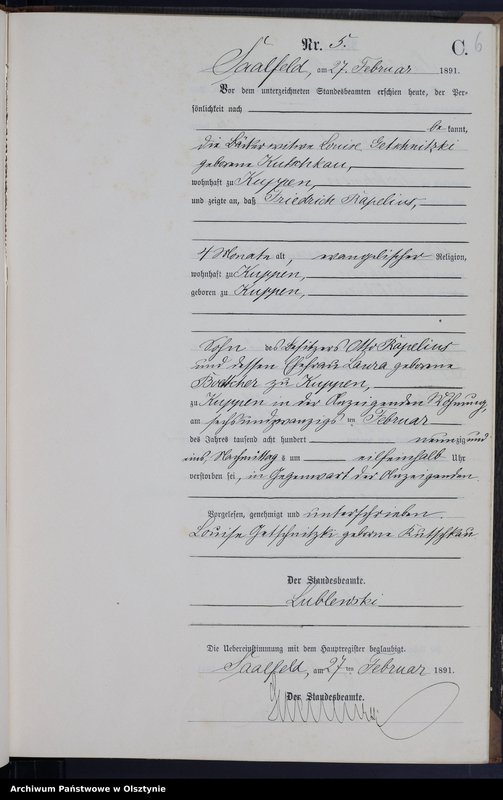 Nr. 5.
C. 6
Saalfeld, am 27. Februar 1891.
Vor dem unterzeichneten Standesbeamten erschien heute, der Per-
sönlichkeit nach
be kannt,
die Louise Getschnitzki
geborene Kutschkau,
wohnhaft zu Kuppen,
und zeigte an, daß Friedrich Kapelius,
4 Monate alt, evangelischer Religion,
wohnhaft zu Kuppen,
geboren zu Kuppen,
Sohn des Besitzers Otto Kapelius
und dessen Ehefrau Laura geborene
Böttcher zu Kuppen,
zu Kuppen in der Anzeigenden Wohnung,
am sechsundzwanzigsten Februar
des Jahres tausend acht hundert neunzig und
eins, Nachmittags um eilfeinhalb Uhr
verstorben sei, in Gegenwart der Anzeigenden.
Vorgelesen, genehmigt und unterschrieben
Louise Getschnitzki geborne Kutschkau
Der Standesbeamte.
Lublewski
Die Uebereinstimmung mit dem Hauptregister beglaubigt.
Saalfeld, am 27ten Februar 1891.
Der Standesbeamte.
Archiwum Państwowe w Olsztynie